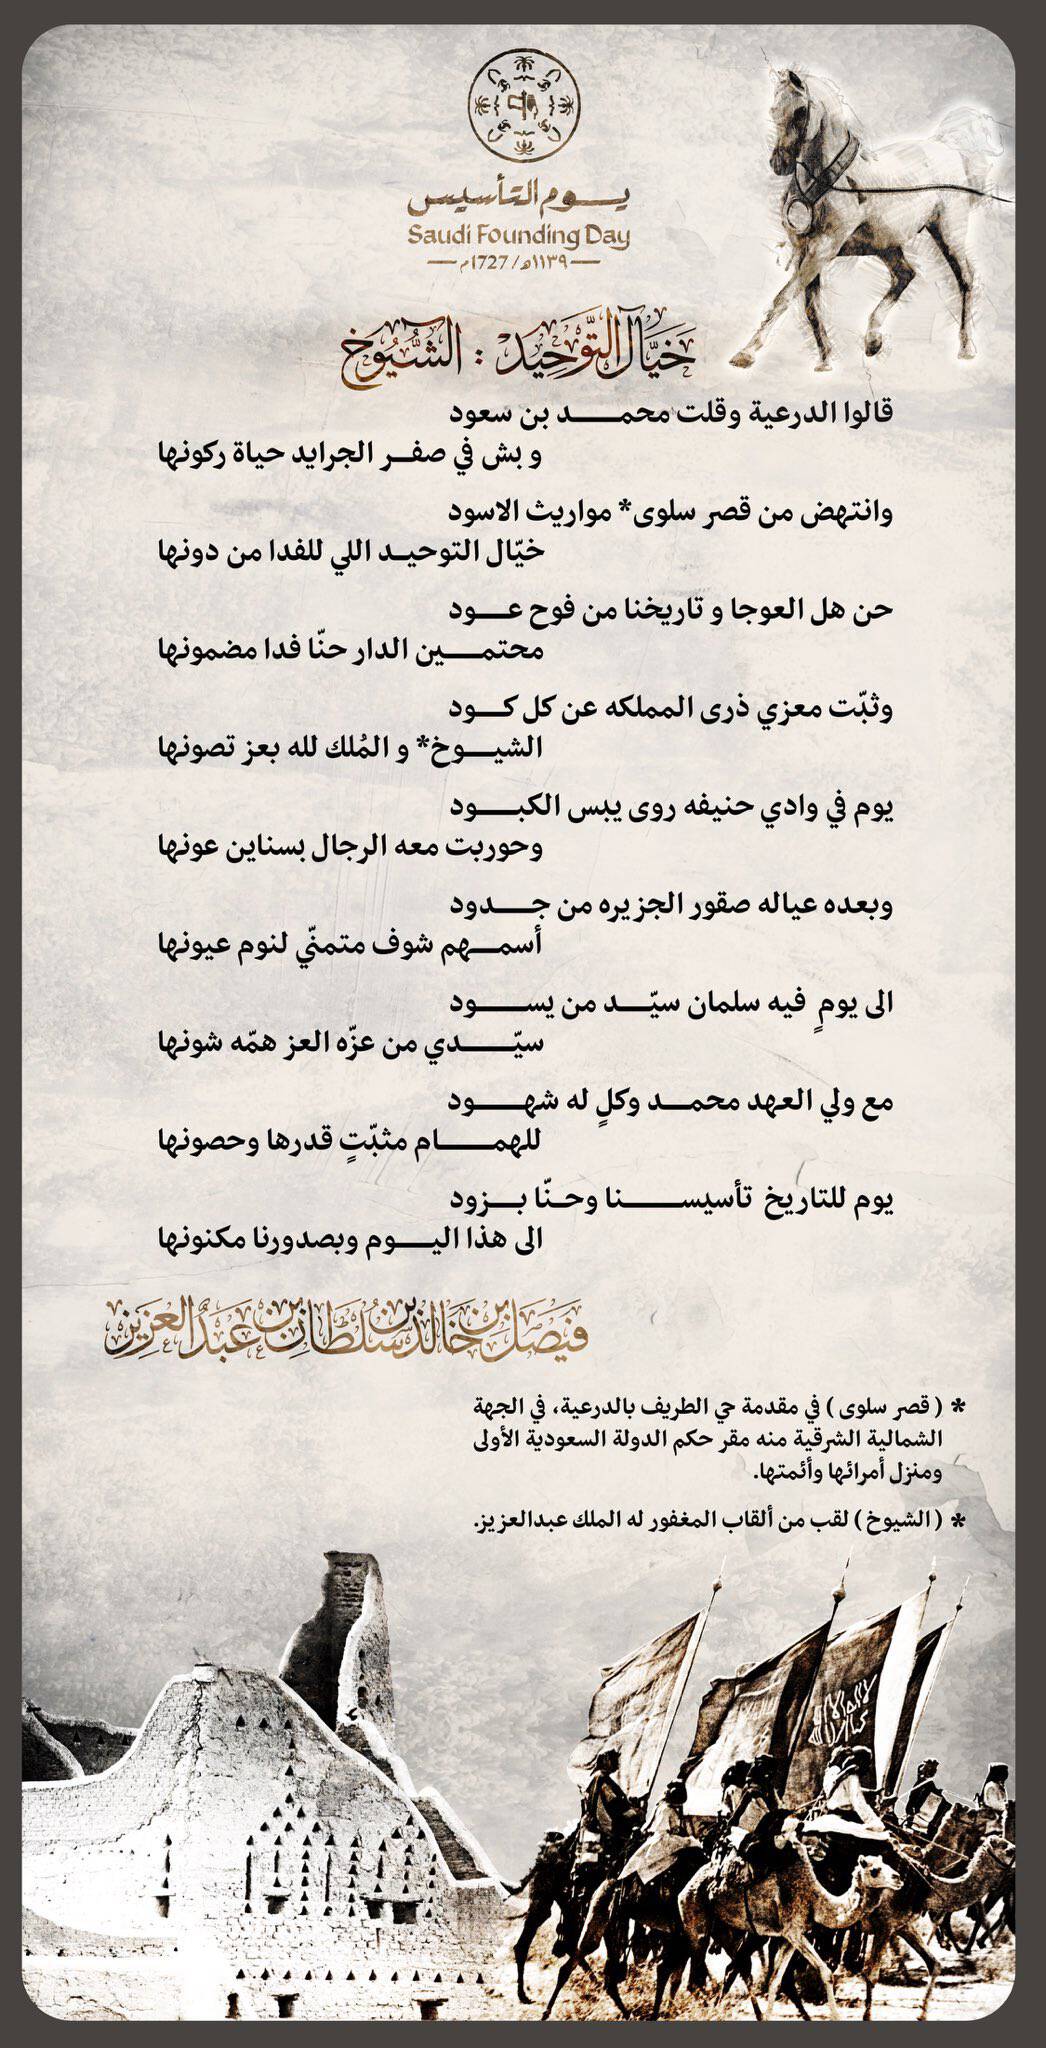 يوم التأسيس
Saudi Founding Day
١١٣٩هـ / 1727م
خيَّال التَّوحيد : الشُّيُوخ
قالوا الدرعية وقلت محمــد بن سعود
و بش في صفــر الجرايد حياة ركونها
وانتهض من قصر سلوى* مواريث الاسود
خيّال التوحيـد اللي للفدا من دونها
حن هل العوجا و تاريخنا من فوح عــود
محتمــين الدار حنّا فدا مضمونها
وثبّت معزي ذرى المملكه عن كل كــود
الشيــوخ* و المُلك لله بعز تصونها
يوم في وادي حنيفه روى يبس الكبــود
وحوربت معه الرجال بسناين عونها
وبعده عياله صقور الجزيره من جــدود
أسمــهم شوف متمنّي لنوم عيونها
الى يومٍ فيه سلمان سيّــد من يســود
سيّــدي من عزّه العز همّه شونها
مع ولي العهد محمــد وكلٍ له شهــود
للهمــام مثبّتٍ قدرها وحصونها
يوم للتاريخ تأسيســنا وحنّا بــزود
الى هذا اليــوم وبصدورنا مكنونها
فيصل بن خالد بن سلطان بن عبدالعزيز
* ( قصر سلوى ) في مقدمة حي الطريف بالدرعية، في الجهة
الشمالية الشرقية منه مقر حكم الدولة السعودية الأولى
ومنزل أمرائها وأئمتها.
* ( الشيوخ ) لقب من ألقاب المغفور له الملك عبدالعزيز.